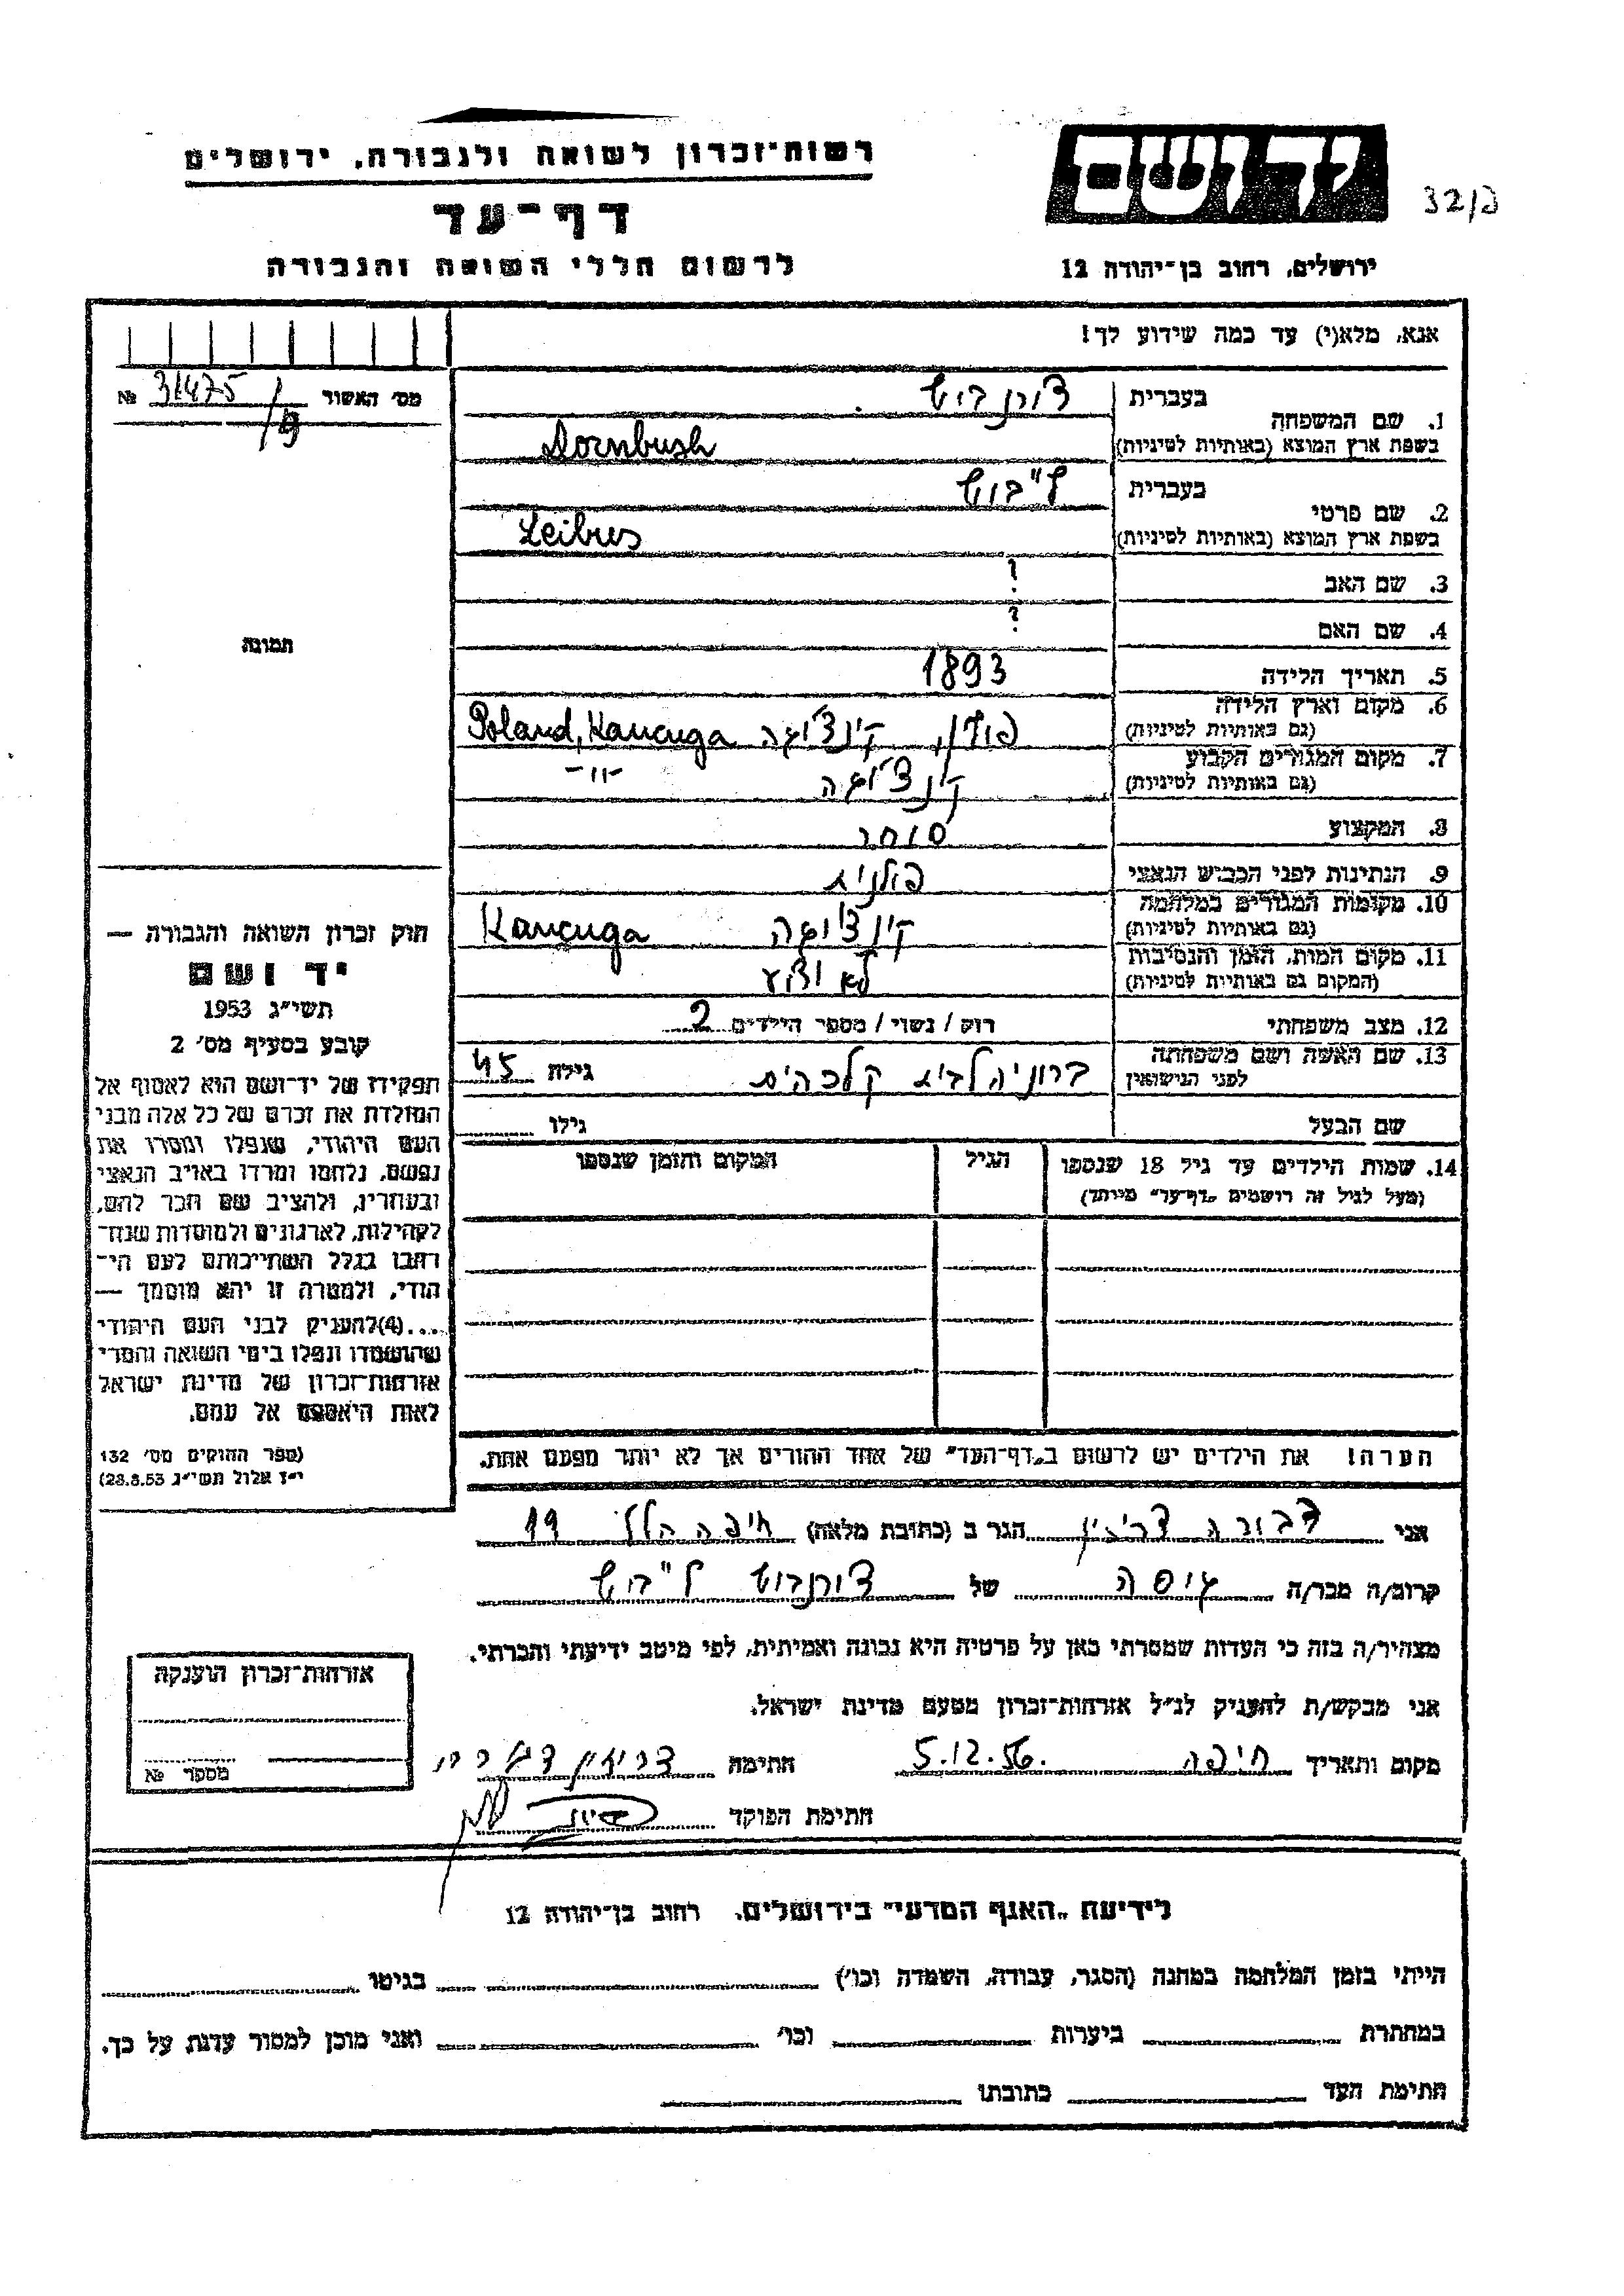 רשות־זכרון לשואה ולגבורה, ירושלים
דף־עד
לרשום חללי השואה והגבורה
יד ושם
32/ק
ירושלים, רחוב בן־יהודה 12
אנא, מלא(י) עד כמה שידוע לך!
מס׳ האשור 31475 №
1. שם המשפחה בעברית דורנבוש
בשפת ארץ המוצא (באותיות לטיניות) Dornbush
2. שם פרטי בעברית ל"בוש
בשפת ארץ המוצא (באותיות לטיניות) Leibus
3. שם האב ?
4. שם האם ?
5. תאריך הלידה 1893
6. מקום וארץ הלידה (גם באותיות לטיניות) פולין, קינצ'וגה Poland, Kancuga
7. מקום המגורים הקבוע (גם באותיות לטיניות) קינצ'וגה -"-
8. המקצוע סוחר
9. הנתינות לפני הכבוש הנאצי פולנית
10. מקומות המגורים במלחמה (גם באותיות לטיניות) קינצ'וגה Kancuga
11. מקום המות, הזמן והנסיבות (המקום גם באותיות לטיניות) לא ידוע
12. מצב משפחתי רוק / נשוי / מספר הילדים 2
13. שם האשה ושם משפחתה לפני הנישואין ברוניה לבית גילה 45
שם הבעל גילו
14. שמות הילדים עד גיל 18 שנספו הגיל המקום והזמן שנספו
(מעל לגיל זה רושמים „דף־עד" מיוחד)
הערה! את הילדים יש לרשום ב„דף־העד" של אחד ההורים אך לא יותר מפעם אחת.
תמונה
חוק זכרון השואה והגבורה —
יד ושם
תשי״ג 1953
קובע בסעיף מס׳ 2
תפקידו של יד־ושם הוא לאסוף אל
המולדת את זכרם של כל אלה מבני
העם היהודי, שנפלו ומסרו את
נפשם, נלחמו ומרדו באויב הנאצי
ובעוזריו, ולהציב שם וזכר להם,
לקהילות, לארגונים ולמוסדות שנח־
רבו בגלל השתייכותם לעם הי־
הודי, ולמטרה זו יהא מוסמך —
....(4)להעניק לבני העם היהודי
שהושמדו ונפלו בימי השואה והמרי
אזרחות־זכרון של מדינת ישראל
לאות היאספם אל עמם.
(ספר החוקים מס׳ 132
י״ז אלול תשי״ג 28.8.53)
אני דבורה הגר ב (כתובת מלאה) חיפה הלל 19
קרוב/ה מכר/ה גיסה של דורנבוש ל"בוש
מצהיר/ה בזה כי העדות שמסרתי כאן על פרטיה היא נכונה ואמיתית, לפי מיטב ידיעתי והכרתי.
אני מבקש/ת להעניק לנ״ל אזרחות־זכרון מטעם מדינת ישראל.
מקום ותאריך חיפה 5.12.56. חתימה
חתימת הפוקד
אזרחות־זכרון הוענקה
מספר №
לידיעת „האגף המדעי" בירושלים. רחוב בן־יהודה 12
הייתי בזמן המלחמה במחנה (הסגר, עבודה, השמדה וכו׳) בגיטו
במחתרת ביערות וכו׳ ואני מוכן למסור עדות על כך.
חתימת העד כתובתו